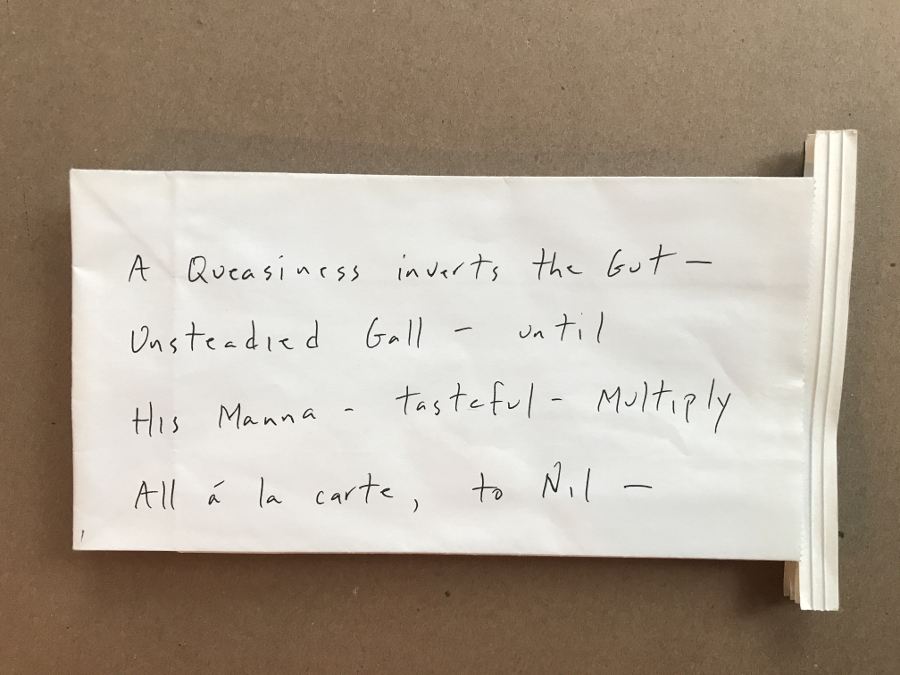 A Queasiness inverts the Gut —
Unsteadied Gall – until
His Manna – tasteful – Multiply
All á la carte, to Nil —